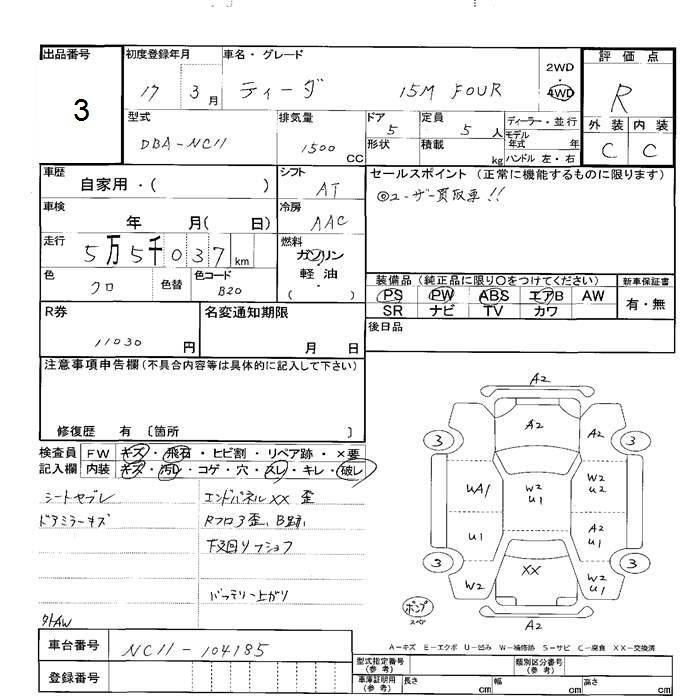 出品番号 初度登録年月 車名・グレード 評価点
3 17 3月 ティーダ 15M FOUR 2WD・4WD R
型式 排気量 ドア 定員 ディーラー・並行 外装 内装
DBA-NC11 1500 CC 5 5人 モデル年式 年 C C
形状 積載 kg ハンドル 左・右
車歴 シフト セールスポイント (正常に機能するものに限ります)
自家用・( ) AT ◎ユーザー買取車!!
車検 冷房
年 月( 日) AAC
走行 燃料
5万5千037km ガソリン・軽油・( )
色 色替 色コード
クロ B20
装備品 (純正品に限り○をつけてください) 新車保証書
PS PW ABS エアB AW 有・無
SR ナビ TV カワ
R券 名変通知期限 後日品
11030円 月 日
注意事項申告欄(不具合内容等は具体的に記入して下さい)
修復歴 有 〔箇所 〕
検査員 FW キズ・飛石・ヒビ割・リペア跡・×要
記入欄 内装 キズ・汚レ・コゲ・穴・スレ・キレ・破レ
シートセブレ エンドパネルXX 歪
ドアミラーキズ Rフロア歪、B跡、
下廻りフショク
バッテリー上がり
外AW
A2
A2 A2
3 3
UA1 W2 U1 W2 U2
U1 A2 U1
3 XX 3
W2 W2 U1
ポンプ
スペア
A2
A-キズ E-エクボ U-凹み W-補修跡 S-サビ C-腐食 XX-交換済
車台番号 NC11-104185
登録番号
型式指定番号(参考) 類別区分番号(参考)
車庫証明用(参考) 長さ cm 幅 cm 高さ cm